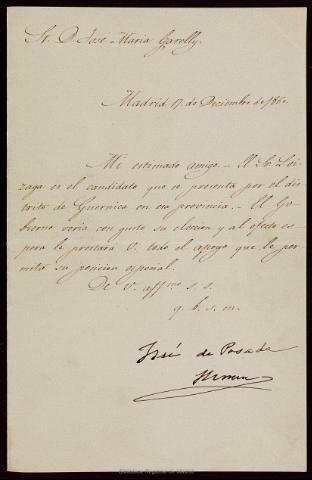 Sr. D. José Maria Garelly.
Madrid 17 de Diciembre de 186
Mi estimado amigo. – El Sr. Loi-
zaga es el candidato que se presenta por el dis-
trito de Guernica en esa provincia. – El Go-
bierno veria con gusto su eleccion y al efecto es-
pera le prestará V. todo el apoyo que le per-
mita su posicion especial.
De V. affmo s. s.
q. b. s. m.
José de Posada
Herrera